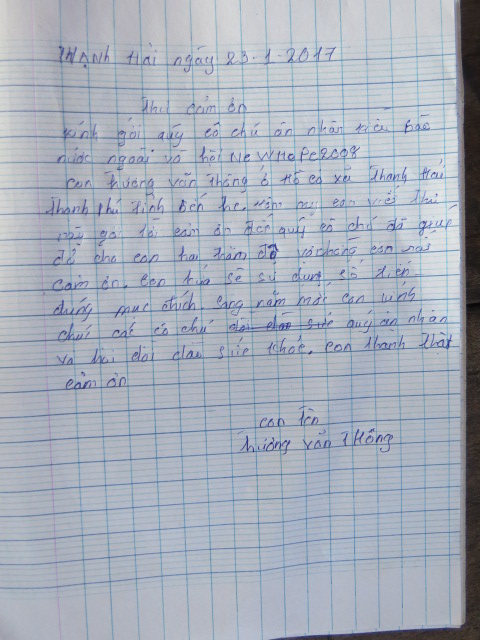 THẠNH Hải ngày 23.1.2017
Thư cảm ơn
kính gởi quý cô chú ân nhân kiều bào
nước ngoài và hội NeWHOPE2008
con Trương văn Thống ở Hồ cỏ xã Thạnh Hải
Thạnh phú Tỉnh Bến tre. năm nay con viết thư
này gởi lời cảm ơn đến quý cô chú đã giúp
đỡ cho con hai trăm đô vợ chồng con rất
cảm ơn. con hứa sẽ sử dụng cô tiền
đúng mục đích. sang năm mới con kính
chúc các cô chú quý ân nhân
và hội dồi dào sức khỏe. con thành thật
cảm ơn
con tên
Trương văn THống